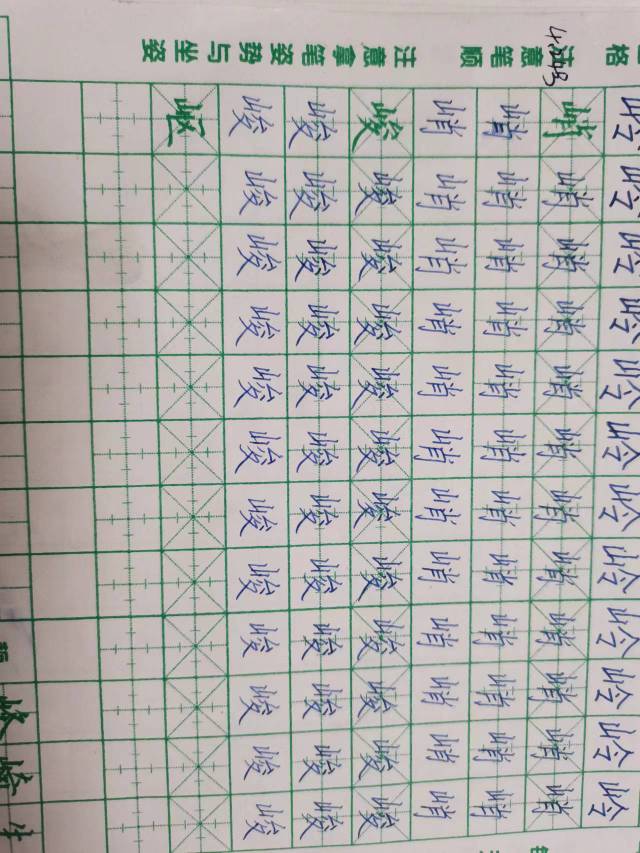 格
注意笔顺
注意拿笔姿势与坐姿
岭岭岭岭岭岭岭岭岭岭岭岭
峭峭峭峭峭峭峭峭峭峭峭峭
峭峭峭峭峭峭峭峭峭峭峭峭
峭峭峭峭峭峭峭峭峭峭峭峭
峻峻峻峻峻峻峻峻峻峻峻峻
峻峻峻峻峻峻峻峻峻峻峻峻
峻峻峻峻峻峻峻峻峻峻峻峻
岖